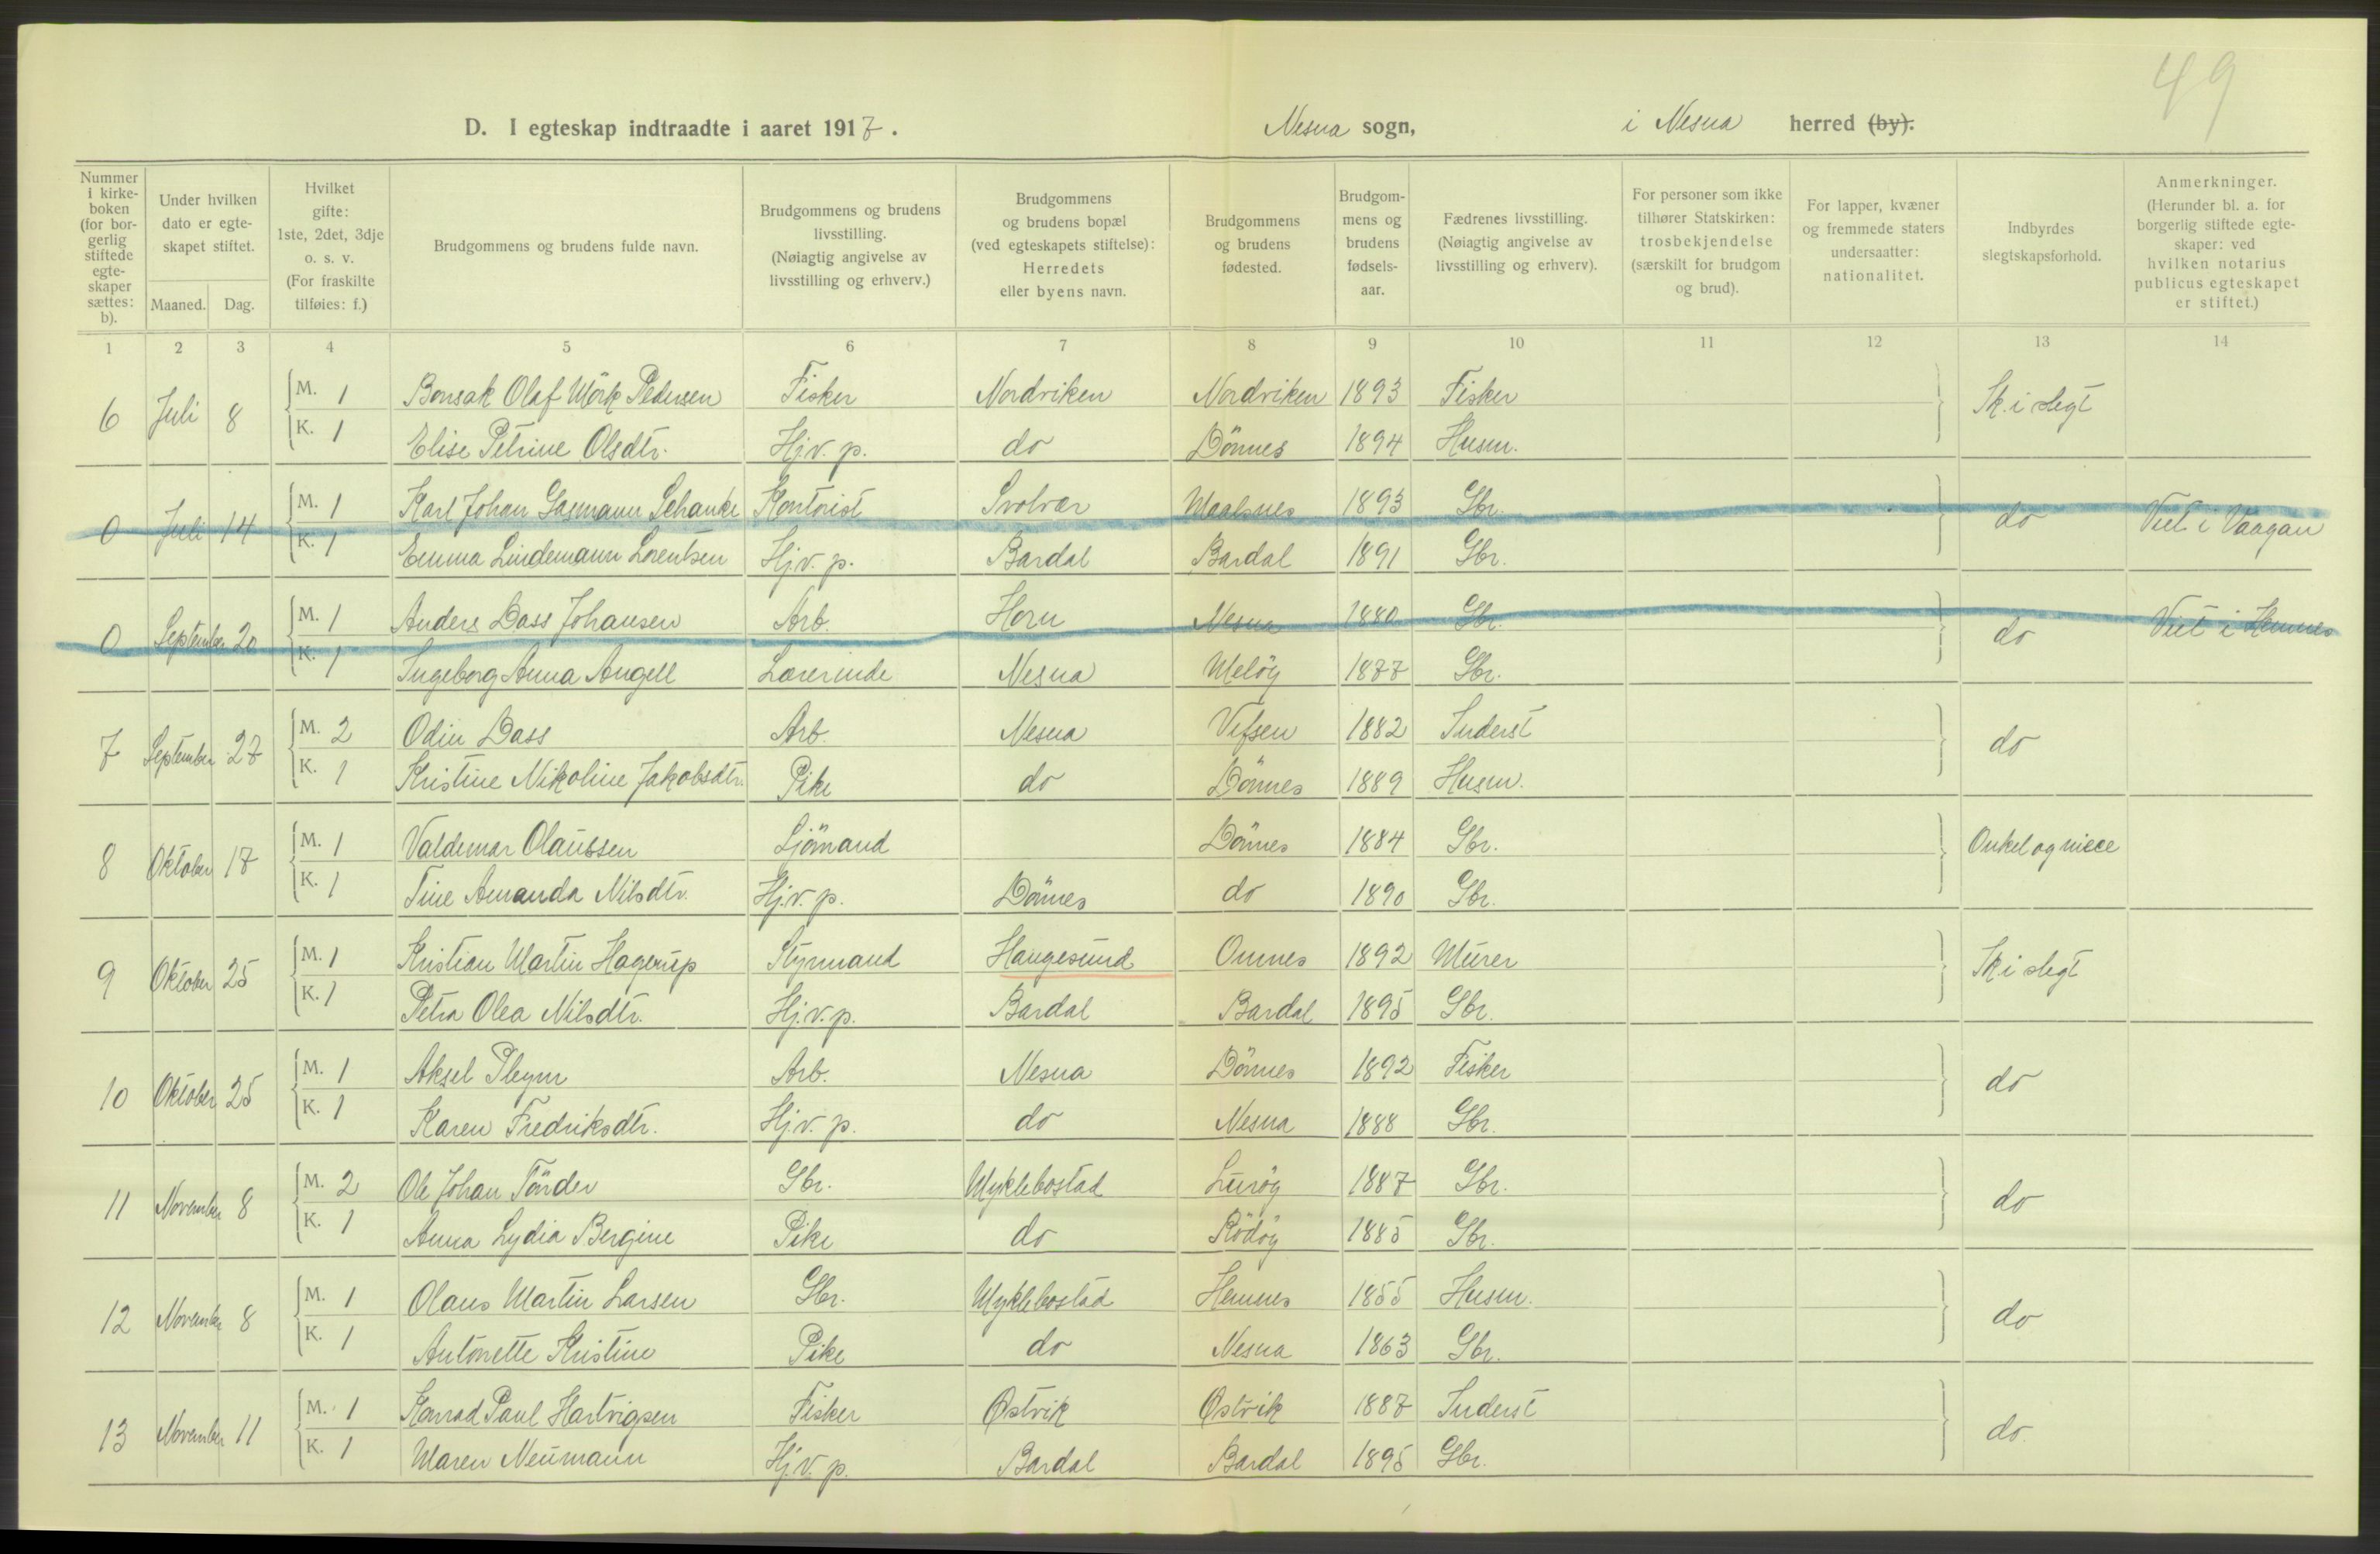 49
D. I egteskap indtraadte i aaret 1917. Nesna sogn, i Nesna herred (by).
Nummer i kirkeboken (for borgerlig stiftede egteskaper sættes: b).
Under hvilken dato er egteskapet stiftet.
Maaned. Dag.
Hvilket gifte: 1ste, 2det, 3dje o. s. v. (For fraskilte tilføies: f.)
Brudgommens og brudens fulde navn.
Brudgommens og brudens livsstilling. (Nøiagtig angivelse av livsstilling og erhverv.)
Brudgommens og brudens bopæl (ved egteskapets stiftelse): Herredets eller byens navn.
Brudgommens og brudens fødested.
Brudgommens og brudens fødselsaar.
Fædrenes livsstilling. (Nøiagtig angivelse av livsstilling og erhverv).
For personer som ikke tilhører Statskirken: trosbekjendelse (særskilt for brudgom og brud).
For lapper, kvæner og fremmede staters undersaatter: nationalitet.
Indbyrdes slegtskapsforhold.
Anmerkninger. (Herunder bl. a. for borgerlig stiftede egteskaper: ved hvilken notarius publicus egteskapet er stiftet.)
1 2 3 4 5 6 7 8 9 10 11 12 13 14
6 Juli 8 M. 1 Bonsak Olaf Mörk Pedersen Fisker Nordviken Nordviken 1893 Fisker Ik. i slegt
K. 1 Elise Petrine Olsdtr. Hj.v. p. do Dönnes 1894 Husm.
0 Juli 14 M. 1 Karl Johan Gasmann Schanke Kontorist Svolvær 1893 Gbr. do Viet i Vaagan
K. 1 Emma Lindemann Lorentsen Hj.v. p. Bardal Bardal 1891 Gbr.
0 September 20 M. 1 Anders Dass Johansen Arb. Horn Nesna 1880 Gbr. do Viet i Hemnes
K. 1 Ingeborg Anna Angell Lærerinde Nesna Melöy 1877 Gbr.
7 September 27 M. 2 Odin Dass Arb. Nesna Vefsen 1882 Inderst do
K. 1 Kristine Nikoline Jakobsdtr. Pike do Dönnes 1889 Husm.
8 Oktober 17 M. 1 Valdemar Olaussen Sjömand Dönnes 1884 Gbr. Onkel og niece
K. 1 Tine Amanda Nilsdtr. Hj.v. p. Dönnes do 1890 Gbr.
9 Oktober 25 M. 1 Kristian Martin Hagerup Styrmand Haugesund Omnes 1892 Murer Ik i slegt
K. 1 Petra Olea Nilsdtr. Hj.v.p. Bardal Bardal 1895 Gbr.
10 Oktober 25 M. 1 Aksel Pleym Arb. Nesna Dönnes 1892 Fisker do
K. 1 Karen Fredriksdtr. Hj.v. p. do Nesna 1888 Gbr.
11 November 8 M. 2 Ole Johan Tönder Gbr. Myklebostad Luröy 1887 Gbr. do
K. 1 Anna Lydia Bergine Pike do Rödöy 1885 Gbr.
12 November 8 M. 1 Olaus Martin Larsen Gbr. Myklebostad Hemnes 1855 Husm. do
K. 1 Antonette Kristine Pike do Nesna 1863 Gbr.
13 November 11 M. 1 Konrad Paul Hartvigsen Fisker Østvik Østvik 1887 Inderst do.
K. 1 Maren Neumann Hj.v. p. Bardal Bardal 1895 Gbr.